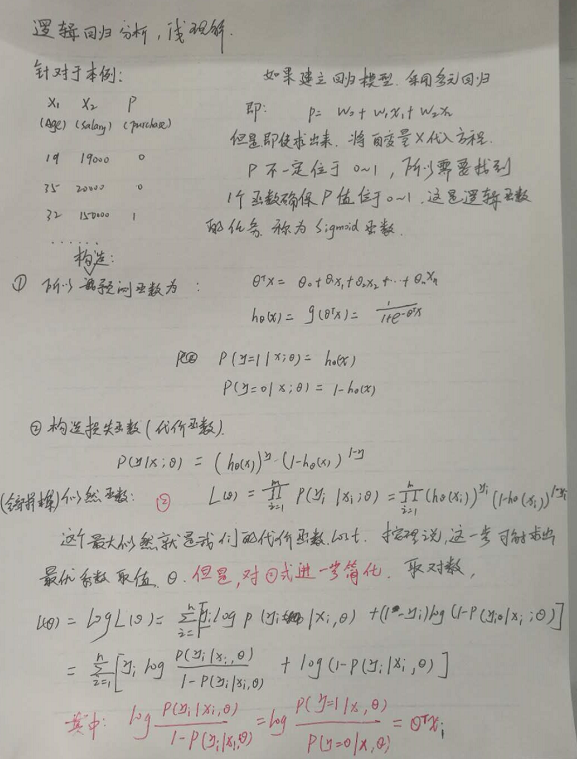 逻辑回归分析,浅理解.
针对于本例:
X₁ X₂ P
(Age) (Salary) (purchase)
19 19000 0
35 20000 0
32 150000 1
......
如果建立回归模型. 采用多元回归
即: P= W₀ + W₁X₁ + W₂X₂
但是即使求出来. 将自变量X代入方程.
P 不一定位于 0~1 , 所以需要找到
1个函数确保P值位于0~1. 这是逻辑函数
的任务. 称为 Sigmoid 函数.
构造:
① 所以 预测函数为: θᵀx = θ₀ + θ₁x₁ + θ₂x₂ + ... + θₙxₙ
hθ(x) = g(θᵀx) = 1/(1+e^-θᵀx)
P(y=1|x;θ) = hθ(x)
P(y=0|x;θ) = 1-hθ(x)
② 构造损失函数(代价函数).
P(y|x;θ) = (hθ(x))^y · (1-hθ(x))^1-y
似然函数: ② L(θ) = ∏ᵢ₌₁ⁿ P(yᵢ|xᵢ;θ) = ∏ᵢ₌₁ⁿ (hθ(xᵢ))^yᵢ (1-hθ(xᵢ))^1-yᵢ
这个最大似然就是我们的代价函数. cost. 按理说,这一步可求出
最优系数取值. θ. 但是, 对②式进一步简化. 取对数,
l(θ) = log L(θ) = Σᵢ₌₁ⁿ [yᵢ log P(yᵢ|xᵢ,θ) + (1-yᵢ) log (1-P(yᵢ|xᵢ;θ)]
= Σᵢ₌₁ⁿ [yᵢ log P(yᵢ|xᵢ,θ)/1-P(yᵢ|xᵢ,θ) + log(1-P(yᵢ|xᵢ,θ)]
其中: log P(yᵢ|xᵢ,θ)/1-P(yᵢ|xᵢ,θ) = log P(y=1|x,θ)/P(y=0|x,θ) = θᵀxᵢ